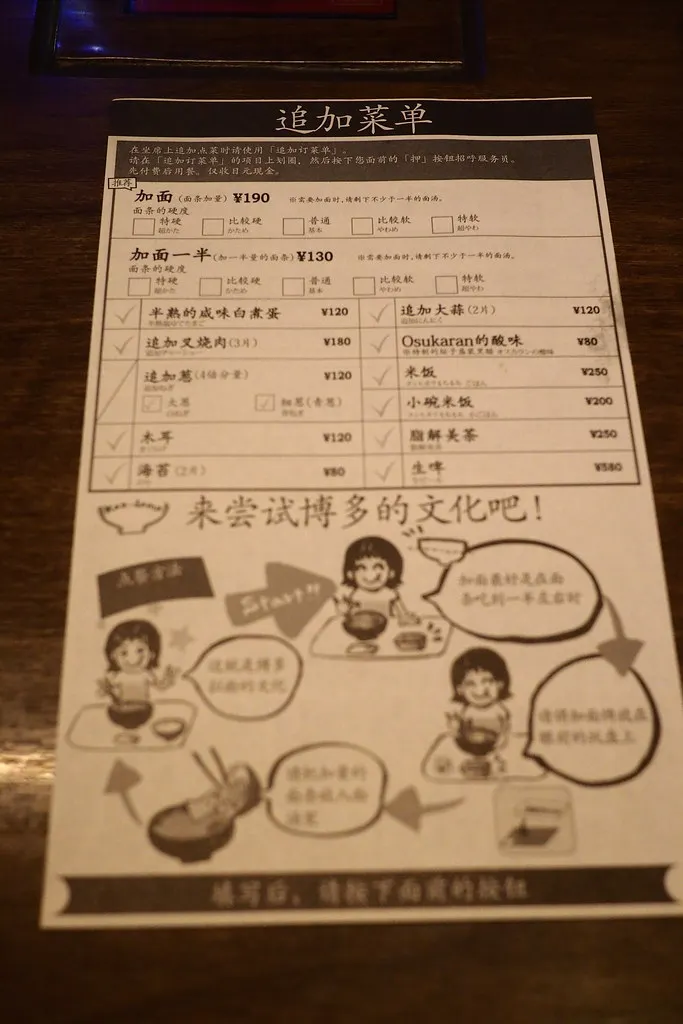 追加菜单
在坐席上追加点菜时请使用「追加订菜单」。
请在「追加订菜单」的项目上划圈，然后按下您面前的「押」按钮招呼服务员。
先付费后用餐。仅收日元现金。
推荐
加面(面条加量) ¥190 ※需要加面时,请剩下不少于一半的面汤。
面条的硬度
特硬 比较硬 普通 比较软 特软
超かた かため 基本 やわめ 超やわ
加面一半(加一半量的面条) ¥130 ※需要加面时,请剩下不少于一半的面汤。
面条的硬度
特硬 比较硬 普通 比较软 特软
超かた かため 基本 やわめ 超やわ
半熟的咸味白煮蛋 ¥120
追加叉烧肉(3片) ¥180
追加葱(4倍分量) ¥120
大葱 细葱(青葱)
木耳 ¥120
海苔(2片) ¥80
追加大蒜(2片) ¥120
Osukaran的酸味 ¥80
米饭 ¥250
小碗米饭 ¥200
脂解美茶 ¥250
生啤 ¥580
来尝试博多的文化吧!
点餐方法
Start!!
加面最好是在面
条吃到一半左右时
请将加面牌放在
眼前的托盘上
请把加量的
面条放入面
汤里
这就是博多
拉面的文化
填写后，请按下面前的按钮